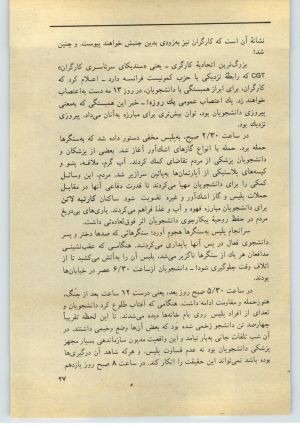 نشانهٔ آن است که کارگران نیز به‌زودی بدین جنبش خواهند پیوست. و چنین
شد!
بزرگ‌ترین اتحادیهٔ کارگری - یعنی «سندیکای سرتاسری کارگران»
CGT که رابطهٔ نزدیکی با حزب کمونیست فرانسه دارد - اعلام کرد که
کارگران، برای ابراز همبستگی با دانشجویان، در روز ۱۳ مه دست به‌اعتصاب
خواهند زد. یك اعتصاب عمومی یك روزه! - خبر این همبستگی که به‌معنی
پیروزی دانشجویان بود، توان بیش‌تری برای مبارزه به‌آنان می‌داد. پیروزی
نزدیك بود.
در ساعت ۲/۳۰ صبح، به‌پلیس مخفی دستور داده شد که به‌سنگرها
حمله برد. حمله با انواع گازهای اشك‌آور آغاز شد. بعضی از پزشکان و
دانشجویان پزشکی از مردم تقاضای کمك کردند. آب گرم، ملافه، پتو و
کیسه‌های پلاستیکی از آپارتمان‌ها به‌پائین سرازیر شد. مردم، این وسائل
کمکی را برای دانشجویان مهیا می‌کردند تا قدرت دفاعی آنها در مقابل
حملات پلیس و گاز اشك‌آور و غیره تقویت شود. ساکنان کارتیه لاتن
برای دانشجویان مبارز قهوه و آب و غذا فراهم می‌کردند. یاری‌های بی‌دریغ
مردم در حفظ روحیهٔ پیکارجوی دانشجویان اثر فوق‌العاده‌ئی داشت.
سرانجام پلیس به‌سنگرها هجوم آورد؛ سنگرهائی که صدها دختر و پسر
دانشجوی فعال در پس آنها پایداری می‌کردند. هنگامی که عقب‌نشینی
مدافعان هر یك از سنگرها ناگزیر می‌شد، پلیس آن را به‌آتش می‌کشید تا از
اتلاف وقت جلوگیری شود! - دانشجویان ازساعت ۶/۳۰ عصر در خیابان‌ها
بودند.
در ساعت ۵/۳۰ صبح روز بعد، یعنی درست ۱۲ ساعت بعد از جنگ،
هنوزحمله و مقاومت ادامه داشت. هنگامی که آفتاب طلوع کرد دانشجویان و
تعدای از افراد پلیس روی بام خانه‌ها دیده می‌شدند. تا این لحظه تقریباً
چهارصد تن دانشجو زخمی شده بود که بعض آن‌ها وضع وخیمی داشتند. در
آن شب تلفات جانی به‌بار نیامد و این واقعیت مدیون سازماندهی بسیار مجهز
پزشکی دانشجویان بود نه عدم قساوت پلیس. و هرکه شاهد آن درگیری‌ها
بوده باشد نمی‌تواند این حقیقت را انکار کند. در ساعت ۸ صبح روز یازدهم
۲۷